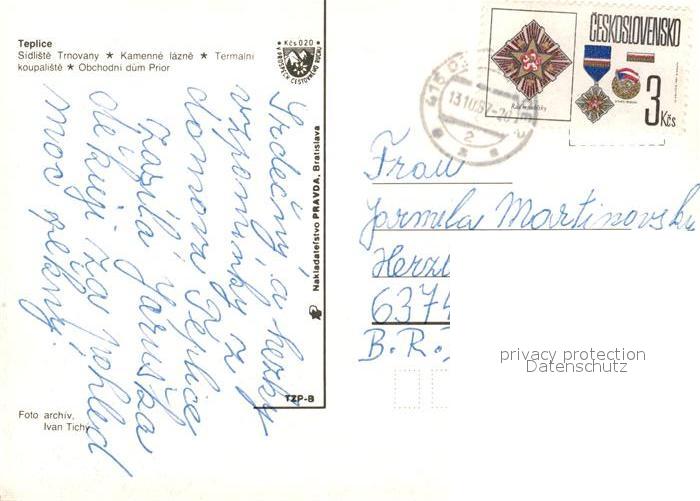 Teplice
Sídliště Trnovany ★ Kamenné lázně ★ Termalní
koupaliště ★ Obchodní dům Prior
Kčs 0,20
Srdečný a hezký
vzpomínky z
domova Teplice
zasílá Jaruška
děkuji za pohled
moc pěkný.
Nakladateľstvo PRAVDA, Bratislava
TZP-B
Foto archív,
Ivan Tichý
ČESKOSLOVENSKO
3 Kčs
415 0
2
Frau
Jarmila Martinovsk
Herz
6374
B.R.
privacy protection
Datenschutz